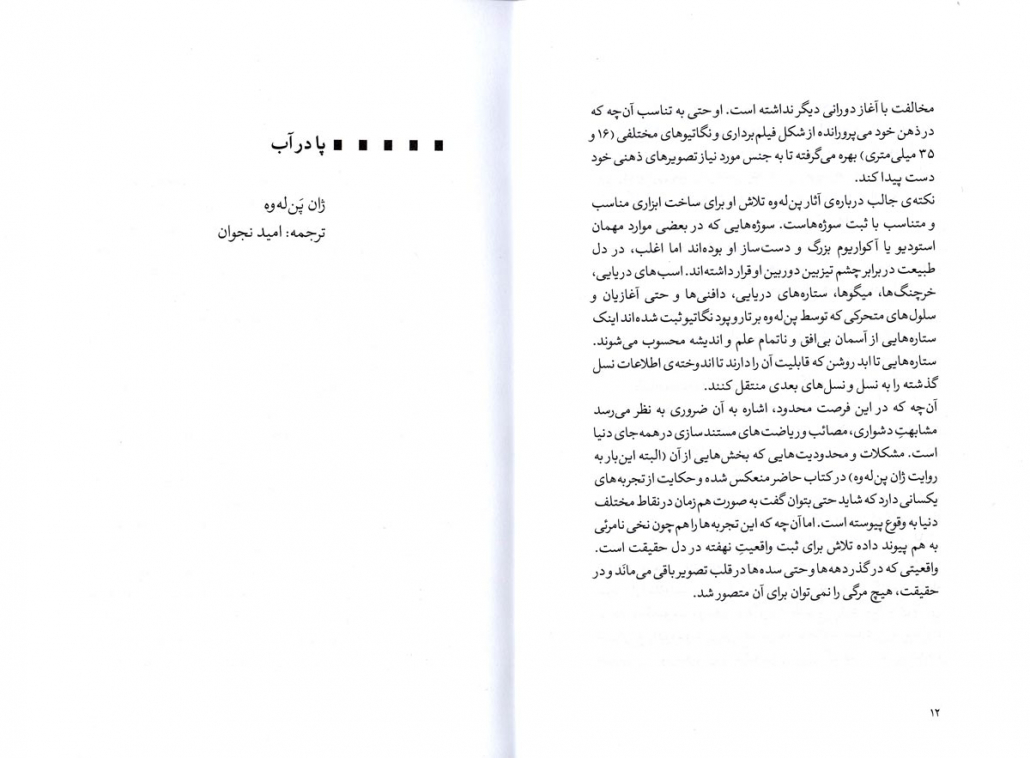 مخالفت با آغاز دورانی دیگر نداشته است. او حتی به تناسب آن‌چه که
در ذهن خود می‌پرورانده از شکل فیلم‌برداری و نگاتیوهای مختلفی (۱۶ و
۳۵ میلی‌متری) بهره می‌گرفته تا به جنس مورد نیاز تصویرهای ذهنی خود
دست پیدا کند.
نکته‌ی جالب درباره‌ی آثار پن‌له‌وه تلاش او برای ساخت ابزاری مناسب
و متناسب با ثبت سوژه‌هاست. سوژه‌هایی که در بعضی موارد مهمان
استودیو یا آکواریوم بزرگ و دست‌ساز او بوده‌اند اما اغلب، در دل
طبیعت در برابر چشم تیزبین دوربین او قرار داشته‌اند. اسب‌های دریایی،
خرچنگ‌ها، میگوها، ستاره‌های دریایی، دافنی‌ها و حتی آغازیان و
سلول‌های متحرکی که توسط پن‌له‌وه بر تار و پود نگاتیو ثبت شده‌اند اینک
ستاره‌هایی از آسمان بی‌افق و ناتمام علم و اندیشه محسوب می‌شوند.
ستاره‌هایی تا ابد روشن که قابلیت آن را دارند تا اندوخته‌ی اطلاعات نسل
گذشته را به نسل و نسل‌های بعدی منتقل کنند.
آن‌چه که در این فرصت محدود، اشاره به آن ضروری به نظر می‌رسد
مشابهتِ دشواری، مصائب و ریاضت‌های مستندسازی در همه‌جای دنیا
است. مشکلات و محدودیت‌هایی که بخش‌هایی از آن (البته این‌بار به
روایت ژان پن‌له‌وه) در کتاب حاضر منعکس شده و حکایت از تجربه‌های
یکسانی دارد که شاید حتی بتوان گفت به صورت هم‌زمان در نقاط مختلف
دنیا به وقوع پیوسته است. اما آن‌چه که این تجربه‌ها را هم‌چون نخی نامرئی
به هم پیوند داده تلاش برای ثبت واقعیتِ نهفته در دل حقیقت است.
واقعیتی که در گذر دهه‌ها و حتی سده‌ها در قلب تصویر باقی می‌مانَد و در
حقیقت، هیچ مرگی را نمی‌توان برای آن متصور شد.
۱۲
پا در آب
ژان پَن‌له‌وه
ترجمه: امید نجوان